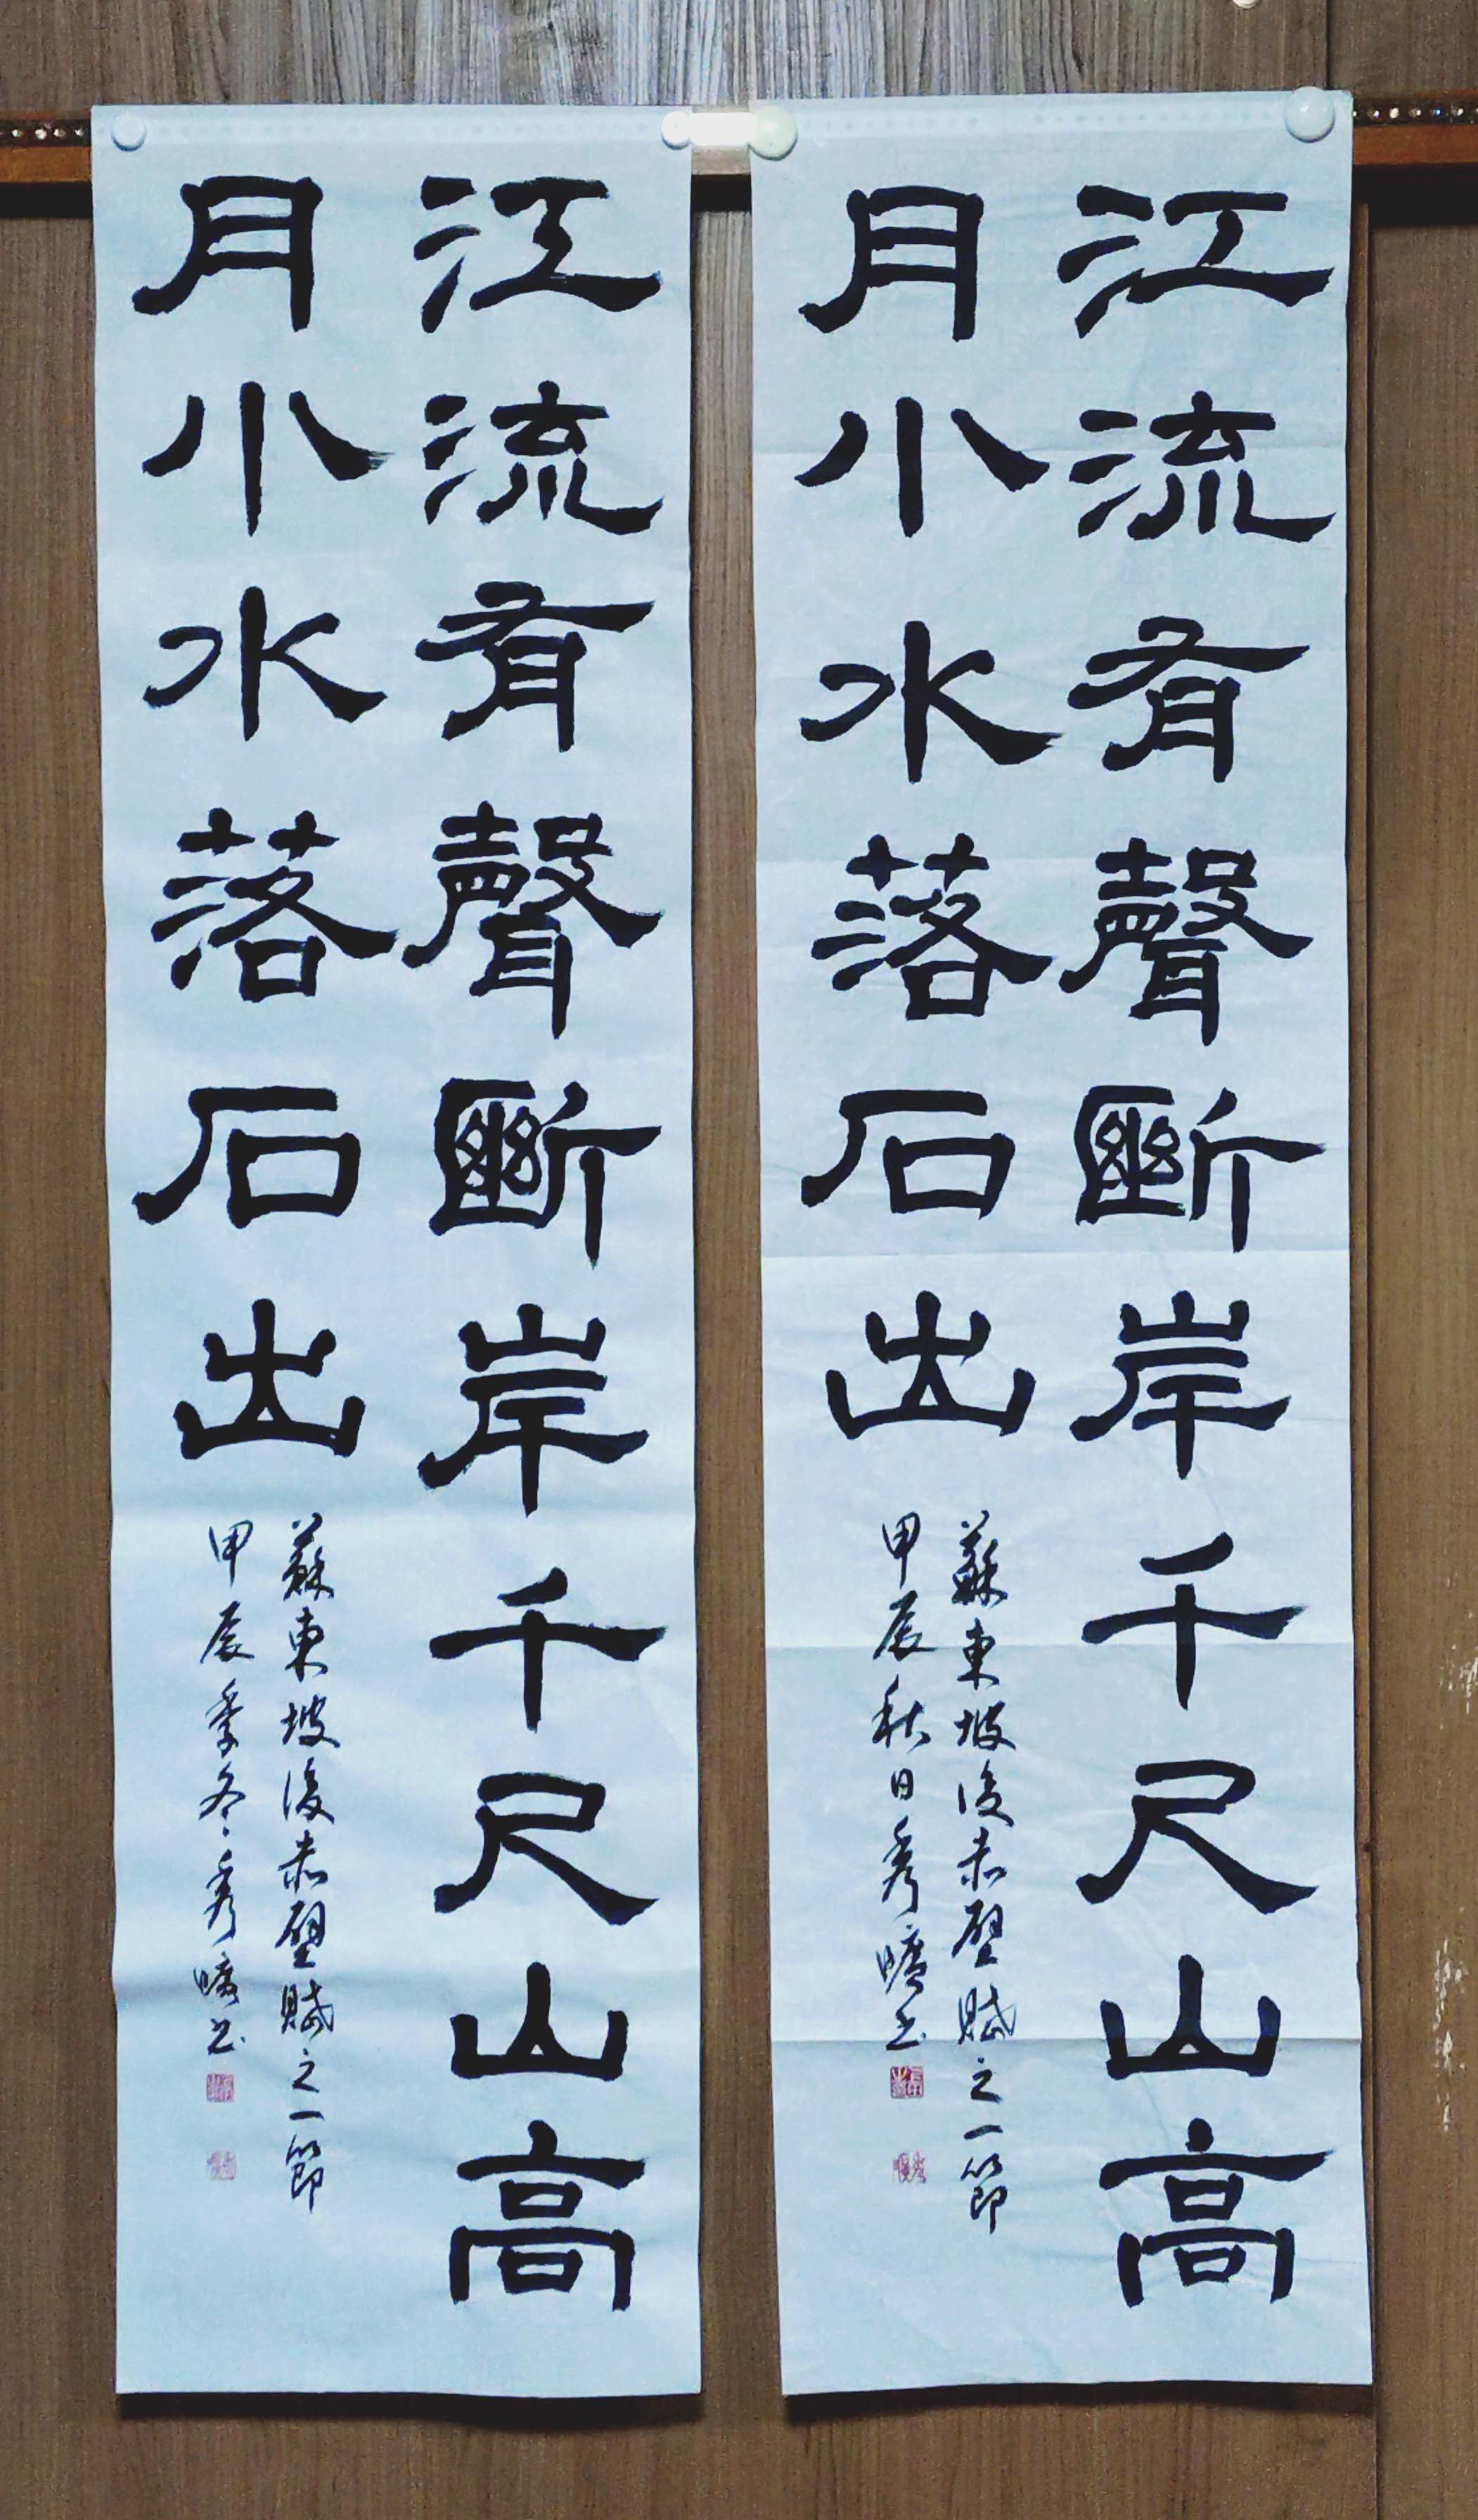 江流有聲斷岸千尺山高
月小水落石出
蘇東坡後赤壁賦之一節
甲辰秋日秀曠书
江流有聲斷岸千尺山高
月小水落石出
蘇東坡後赤壁賦之一節
甲辰季冬秀曠书